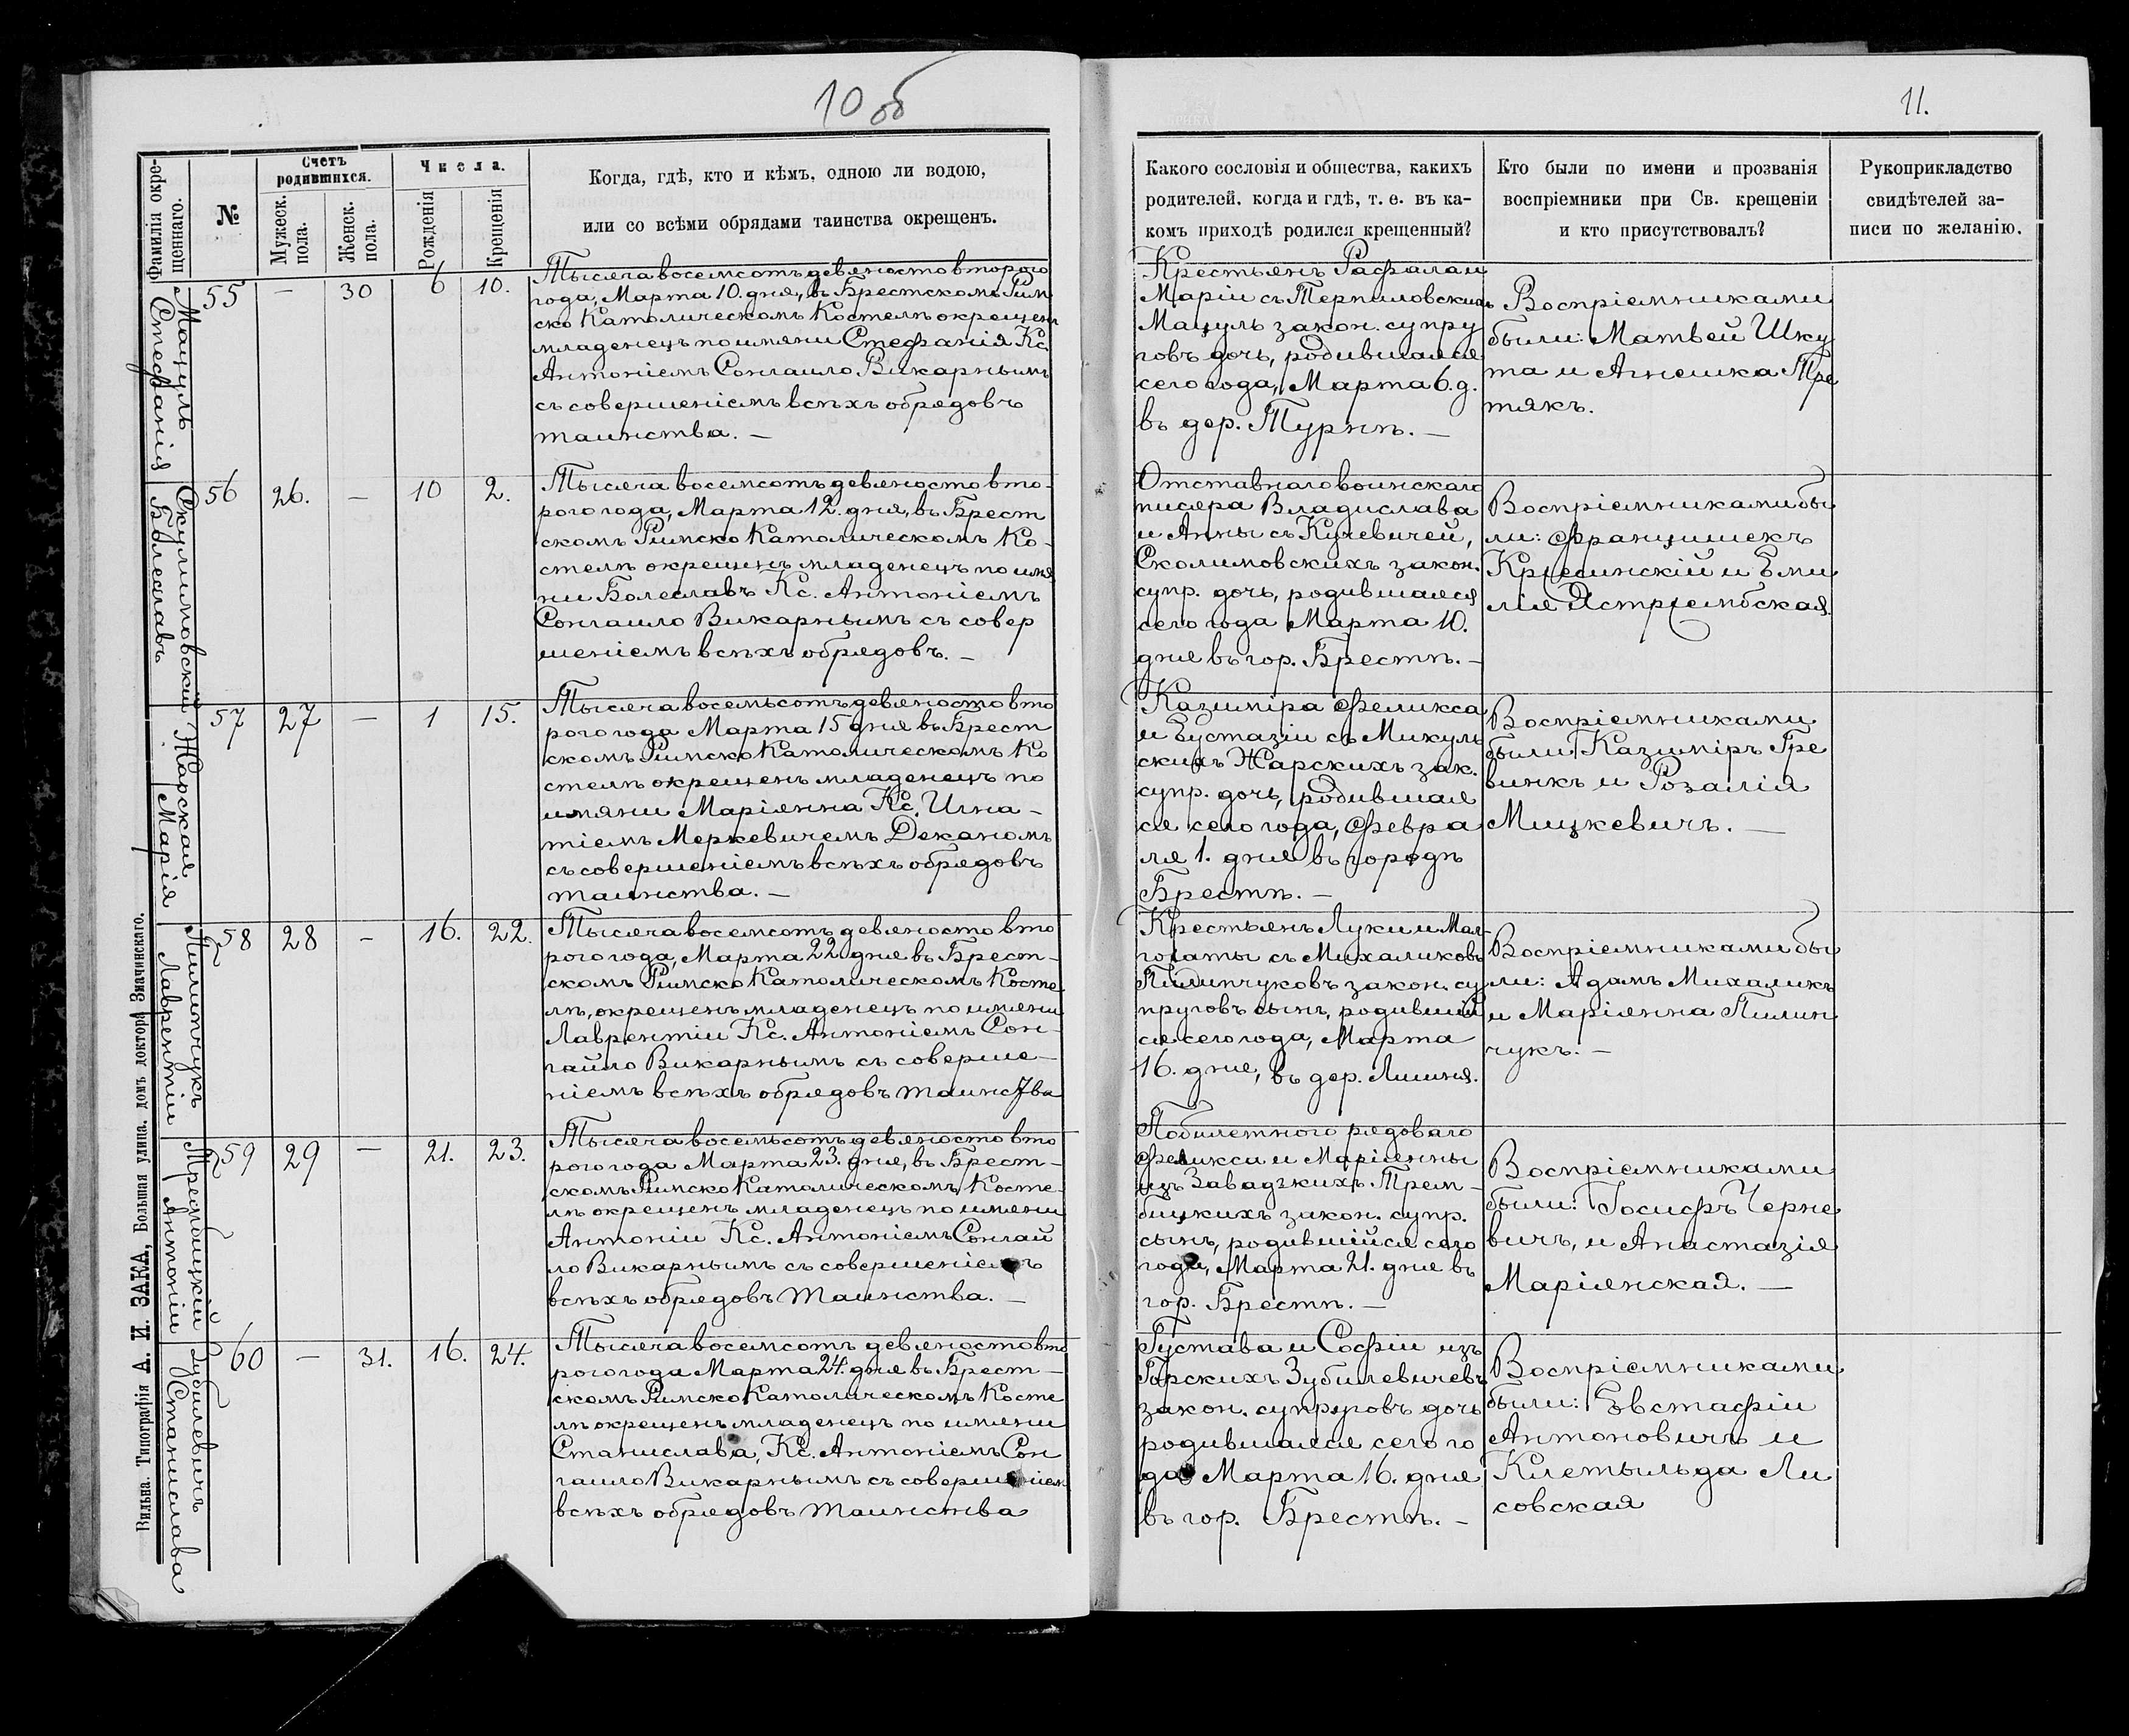 10 об
11.
Фамилія окре-
щеннаго.
№
Счетъ
родившихся.
Мужеск.
пола.
Женск.
пола.
Числа.
Рожденія
Крещенія
Когда, гдѣ, кто и кѣмъ, одною ли водою,
или со всѣми обрядами таинства окрещенъ.
Какого сословія и общества, какихъ
родителей, когда и гдѣ, т. е. въ ка-
комъ приходѣ родился крещенный?
Кто были по имени и прозванія
воспріемники при Св. крещеніи
и кто присутствовалъ?
Рукоприкладство
свидѣтелей за-
писи по желанію.
Мацуль
Стефанія
55 — 30 6 10.
Тысяча восемсотъ девяносто второго
года, Марта 10. дня, въ Брестскомъ Рим
ско Католическомъ Костелѣ окрещенъ
младенецъ по имяни Стефанія Кс.
Антоніемъ Сонгаило Викарнымъ
съ совершеніемъ всѣхъ обрядовъ
таинства. —
Крестьянъ Рафала и
Маріи съ Терпиловскихъ
Мацуль закон. супру
говъ дочь, родившаяся
сего года, Марта 6. д.
въ дер. Турнѣ. —
Воспріемниками
были: Матвей Шку
та и Агнешка Тре
тякъ.
Скулимовскій
Болеславъ
56 26. — 10 2.
Тысяча восемсотъ девяносто вто-
рого года, Марта 12. дня, въ Брест
скомъ Римско Католическомъ Ко-
стелѣ окрещенъ младенецъ по имя
ни Болеславъ Кс. Антоніемъ
Сонгаило Викарнымъ съ совер
шеніемъ всѣхъ обрядовъ. —
Отставнаго воинскаго
писара Владислава
и Анны съ Кучевичей,
Сколимовскихъ закон.
супр. дочь, родившаяся
сего года Марта 10.
дня въ гор. Брестѣ. —
Воспріемниками бы
ли: Францишекъ
Кржесинскій и Еми
лія Ястржембская
Жарская
Марія
57 27 — 1 15.
Тысяча восемьсотъ девяносто вто
рого года Марта 15 дня въ Брест
скомъ Римско Католическомъ Ко
стелѣ окрещенъ младенецъ по
имяни Маріянна Кс. Игна-
тіемъ Меркевичемъ Деканомъ
съ совершеніемъ всѣхъ обрядовъ
таинства. —
Казиміра Феликса
и Еустазіи съ Микуль
скихъ Жарскихъ зак.
супр. дочь, родившая
ся сего года, Февра
ля 1. дня въ городѣ
Брестѣ. —
Воспріемниками
были Казиміръ Гре
винкъ и Розалія
Мицкевичъ. —
Пилипчукъ
Лаврентіи
58 28 — 16. 22.
Тысяча восемсотъ девяносто вто
рого года, Марта 22 дня въ Брест-
скомъ Римско Католическомъ Косте
лѣ, окрещенъ младенецъ по имени
Лаврентіи Кс. Антоніемъ Сон-
гайло Викарнымъ съ соверше-
ніемъ всѣхъ обрядовъ таинства
Крестьянъ Луки и Мал-
гоаты съ Михаликовъ
Пилипчуковъ закон. су
пруговъ сынъ, родившій
ся сего года, Марта
16. дня, въ дер. Лишня.
Воспріемниками бы
ли: Адамъ Михаликъ
и Маріянна Пилип
чукъ. —
Трембицкій
Антоніи
59 29 — 21. 23.
Тысяча восемьсотъ девяносто вто
рого года Марта 23. дня, въ Брест-
скомъ Римско Католическомъ Косте-
лѣ окрещенъ младенецъ по имени
Антоніи Кс. Антоніемъ Сонгай
ло Викарнымъ съ совершеніемъ
всѣхъ обрядовъ таинства. —
Побилетного рядоваго
Феликса и Маріянны
изъ Завадзкихъ Трем-
бицкихъ закон. супр.
сынъ, родившійся сего
года, Марта 21. дня въ
гор. Брестѣ. —
Воспріемниками
были: Іосифъ Черне
вичъ, и Анастазія
Маріянская. —
Зубилевичъ
Станислава
60 — 31. 16. 24.
Тысяча восемсотъ девяносто вто
рого года Марта 24. дня въ Брест-
скомъ Римско Католическомъ Косте
лѣ окрещенъ младенецъ по имени
Станислава, Кс. Антоніемъ Сон
гаило Викарнымъ съ совершеніем
всѣхъ обрядовъ таинства
Густава и Софіи изъ
Горскихъ Зубилевичевъ
закон. супруговъ дочь
родившаяся сего го
да Марта 16. дня
въ гор. Брестѣ. —
Воспріемниками
были: Евстафіи
Антоновичъ и
Клетыльда Ли
совская
Вильна. Типографія А. И. ЗАКА, Большая улица, домъ доктора Значинскаго.